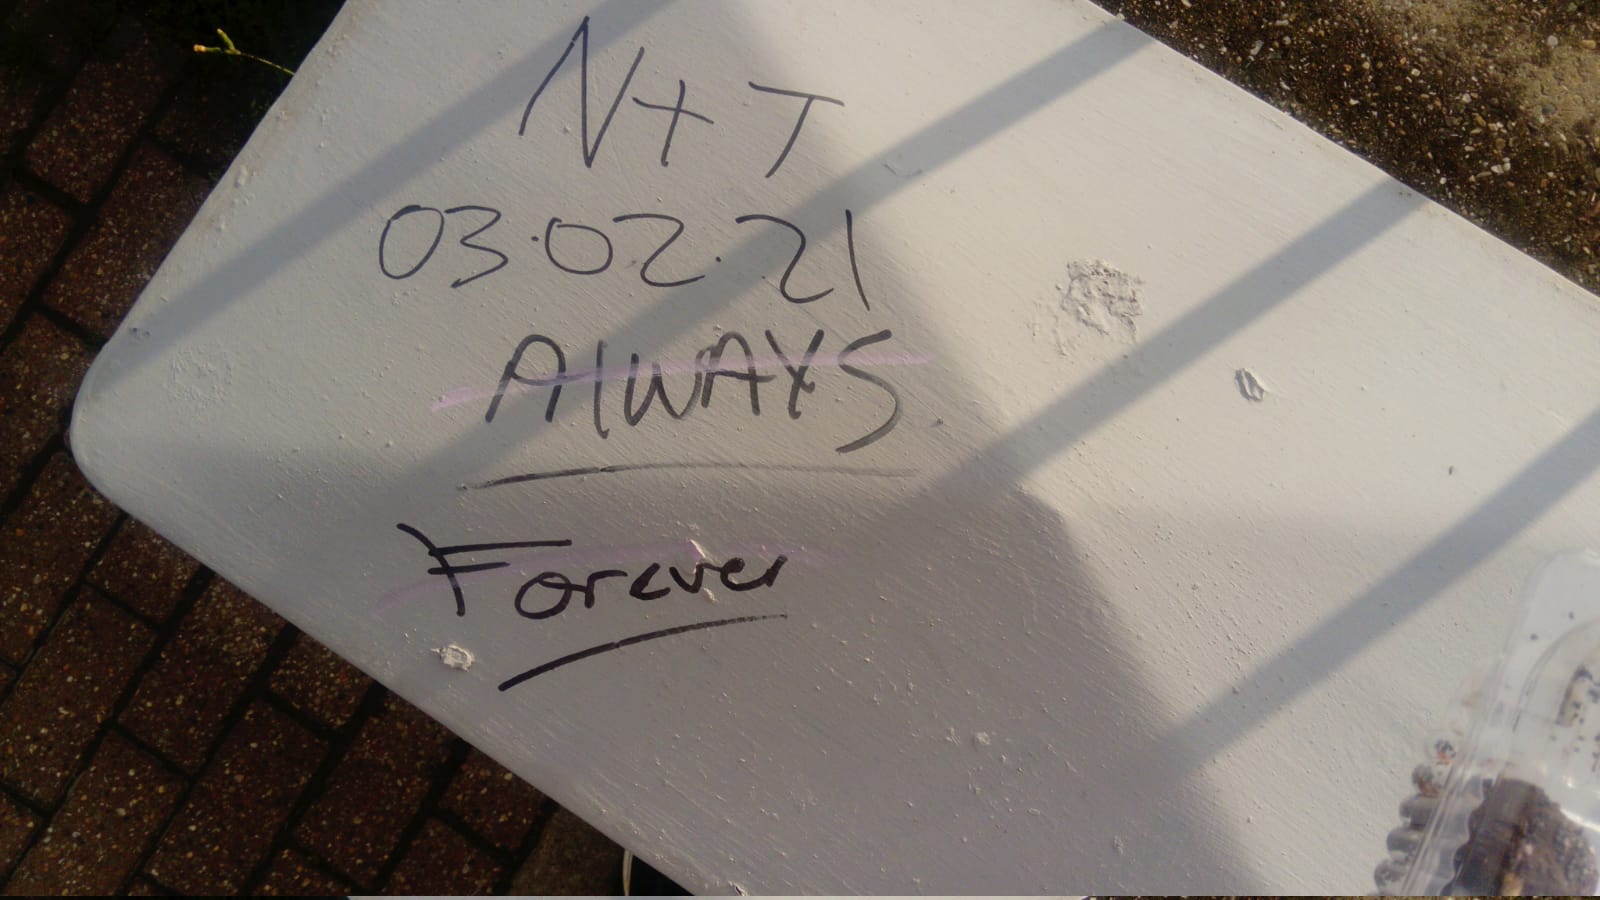 N+T
03.02.21
AlWAYS
Forever